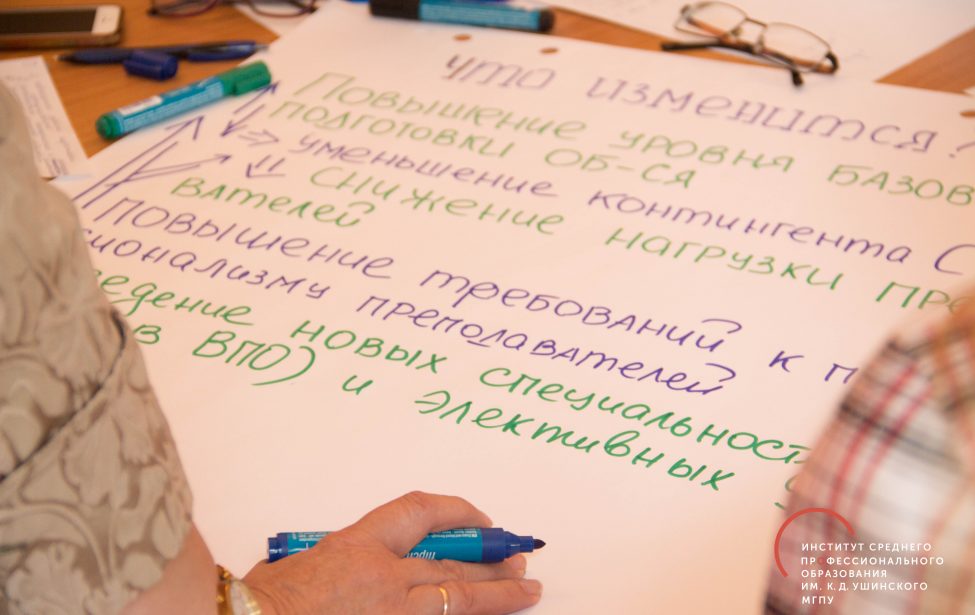 что изменится?
Повышение уровня базов
подготовки об-ся
⇒ уменьшение контингента С
⇓ снижение нагрузки пре
вателей
повышение требований к п
сионализму преподавателей
едение новых специальност
в ВПО) и элективных
ИНСТИТУТ СРЕДНЕГО
ПРОФЕССИОНАЛЬНОГО
ОБРАЗОВАНИЯ
ИМ. К.Д. УШИНСКОГО
МГПУ